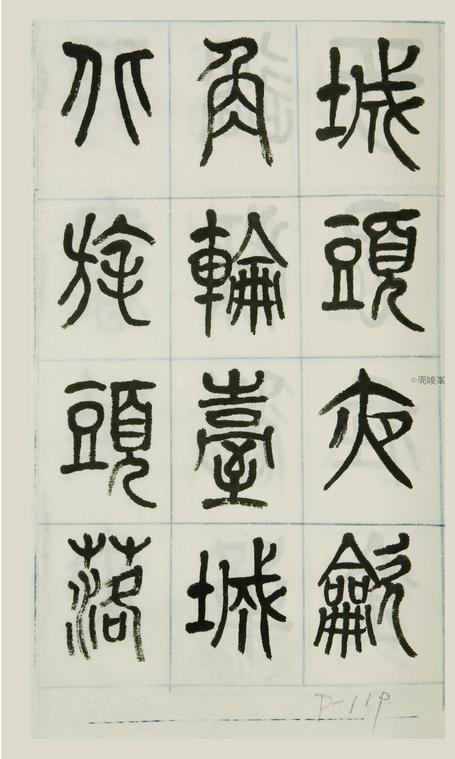 城頭夜龡
角輪臺城
北旄頭落
©周峻峯
P-119